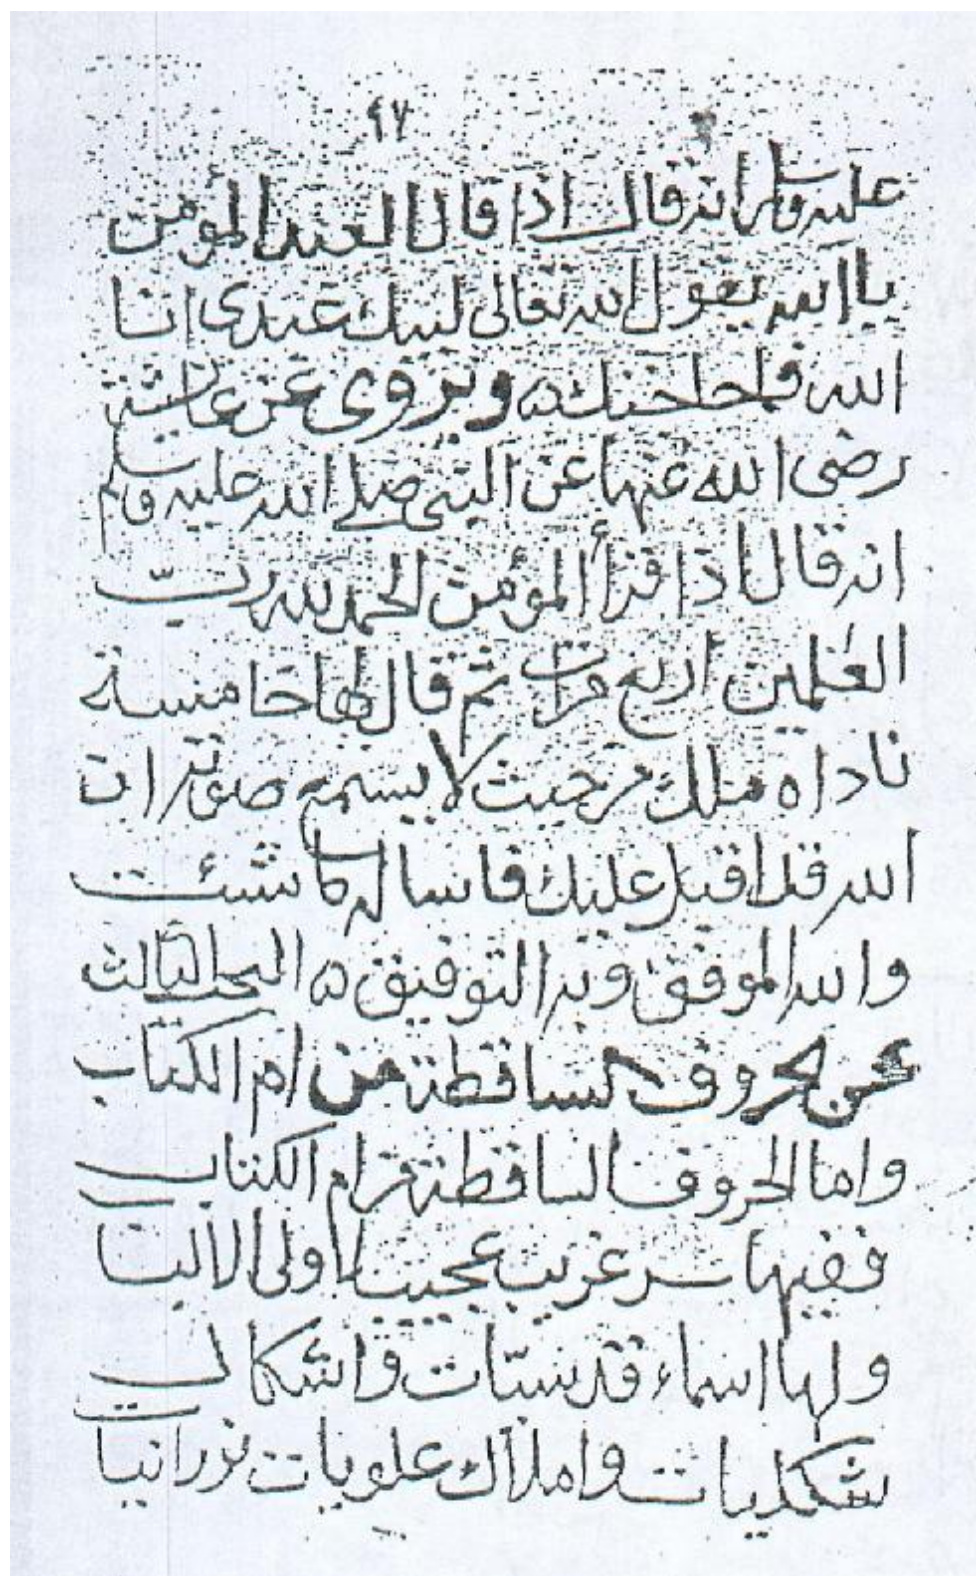 ٤٧
عليه وسلم انه قال اذا قال العبد المؤمن
يا الله يقول الله تعالى لبيك عبدي انا
الله فما حاجتك ه ويروى عن عائشة
رضى الله عنها عن النبي صلى الله عليه وسلم
انه قال اذا قرأ المؤمن الحمد لله ربّ
العٰلمين اربع مرات ثم قالها خامسة
ناداه ملك من حيث لا يسمع صوته ان
الله قد اقبل عليك فاساله ما شئت
والله الموفق وبه التوفيق ه البحث الثالث
عن الحروف الساقطة من ام الكتاب
واما الحروف الساقطة من ام الكتاب
ففيها سر غريب عجيب لاولى الالباب
ولها اسماء قدسيّات واشكال
شكليات واملاك علويات نورانيات